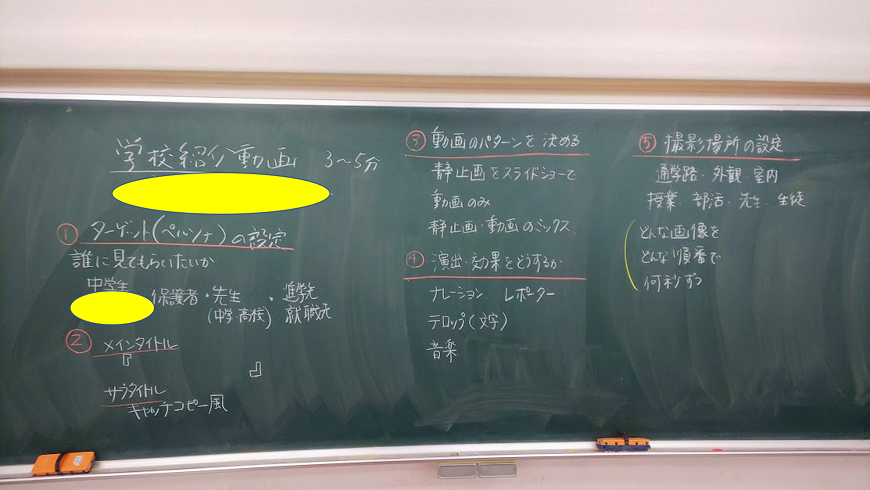 学校紹介動画 3〜5分
① ターゲット(ペルソナ)の設定
誰に見てもらいたいか
中学生
保護者・先生・進学先
(中学・高校) 就職先
② メインタイトル
『 』
サブタイトル
キャッチコピー風
③ 動画のパターンを決める
静止画をスライドショーで
動画のみ
静止画・動画のミックス
④ 演出・効果をどうするか
ナレーション レポーター
テロップ(文字)
音楽
⑤ 撮影場所の設定
通学路・外観・室内
授業・部活・先生・生徒
どんな画像を
どんな順番で
何秒ずつ